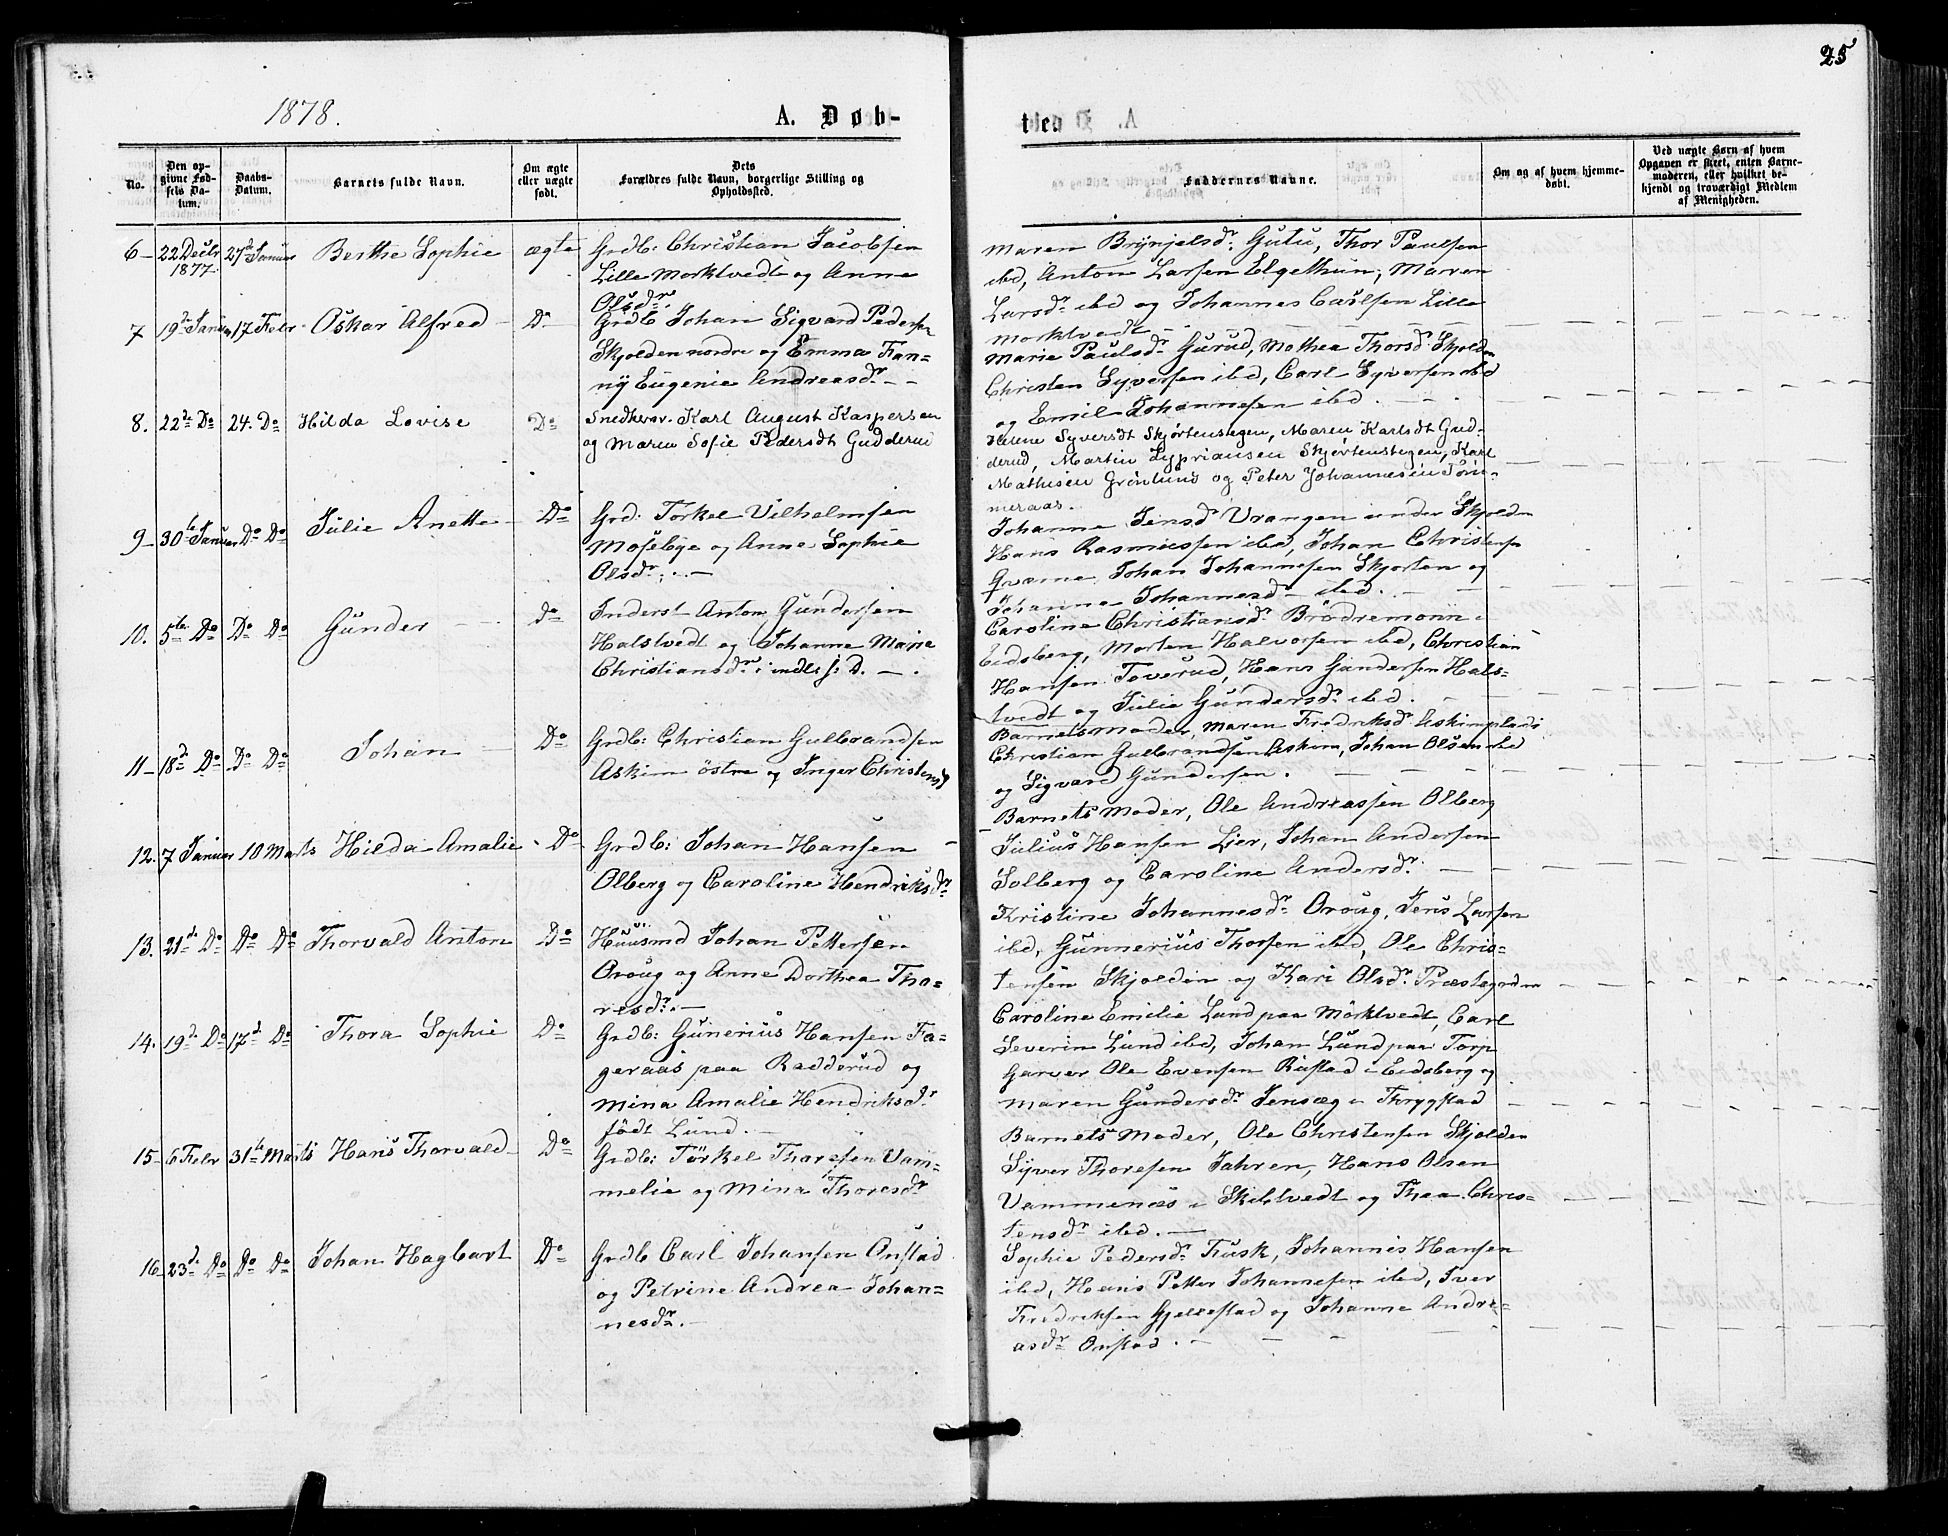 25
1878.
A. Døb-
te.
No.
Den op-
givne Fød-
sels Da-
tum.
Daabs-
Datum.
Barnets fulde Navn.
Om ægte
eller uægte
født.
Dets
Forældres fulde Navn, borgerlige Stilling og
Opholdssted.
Faddernes Navne.
Om og af hvem hjemme-
døbt.
Ved uægte Børn af hvem
Opgaven er skeet, enten Barne-
moderen, eller hvilket be-
kjendt og troværdigt Medlem
af Menigheden.
6 22 Decbr 1877 27de Januar Berthe Sophie ægte
Grdb: Christian Jacobsen
Lille Morktvedt og Anne
Olsdr.
Maren Brynjelsdr. Gutu, Thor Paulsen
ibd, Anton Larsen Elgethun, Maren
Larsdr ibd og Johannes Carlsen Lille
morktvedt
7 19de Januar 17 Febr Oskar Alfred Do
Grdb Johan Sigvard Pedersen
Skjolden nordre og Emma Fan=
ny Eugenie Andreasdr.
Marie Paulsdr Gurud, Mathea Thorsdr Skjolden
Christen Syversen ibd, Carl Syversen ibd
og Emil Johannesen ibd.
8. 22de Do 24. Do Hilda Lovise Do
Snedkersv. Karl August Kaspersen
og Maren Sofie Pedersdt Gudderud
Helene Syversdt Skjørtenstegen, Maren Karlsdt Gud-
derud, Martin Sypriansen Skjørtenstegen, Karl
Mathisen Grønlund og Peter Johannesen Tøm-
meraas.
9 30te Januar Do Do Julie Anette Do
Grd: Torkel Vilhelmsen
Mosebye og Anne Sophie
Olsdr.
Johanne Jensdr Vrangen under Skjolden
Hans Rasmussen ibd, Johan Christensen
Johan Johannesen Skjorten og
Johanne Johannesdr ibd.
10. 5te Do Do Do Gunder do
Inderst Anton Gundersen
Halstvedt og Johanne Marie
Christiansdr
Caroline Christiansdr Brødremoen i
Eidsberg, Morten Halvorsen ibd, Christian
Hansen Toverud, Hans Gundersen Hals=
tvedt og Julie Gundersdr ibd.
11 18de Do Do Do Johan Do
Grdb: Christian Gulbrandsen
Askim østre og Inger Christensdr
Barnets Moder, Maren Fredriksdr Askimplads
Christian Gulbrandsen Askim, Johan Olsen ibd
og Sigvard Gundersen.
12. 7 Januar 10 Marts Hilda Amalie Do
Grdb: Johan Hansen
Olberg og Caroline Hendriksdr
Barnets Moder, Ole Andreassen Olberg
Julius Hansen Lier, Johan Andersen
Solberg og Caroline Andersdr.
13. 21de Do Do Do Thorvald Anton Do
Huusmd Johan Pettersen
Oroug og Anne Dorthea Tho=
resdr.
Kristine Johannesdr Oroug, Jens Larsen
ibd, Gunnerius Thorsen ibd, Ole Chris=
tensen Skjolden og Kari Olsdr. Præstegaarden
14. 19de Do 17de Do Thora Sophie Do
Grdb: Gunerius Hansen Fa=
geraas paa Radderud og
Mina Amalie Hendriksdr
født Lund.
Caroline Emilie Lund paa Mörktvedt, Carl
Severin Lund ibd, Johan Lund paa Torp
Garver Ole Evensen Rustad i Eidsberg og
Maren Gundersdr Jensæg i Thrygstad
15 6 Febr 31te Marts Hans Thorvald Do
Grdb: Törkel Thoresen Vam=
melie og Mina Thoresdr
Barnets Moder, Ole Christensen Skjolden
Syver Thoresen Jahren, Hans Olsen
Vammenæs i Skibtvedt og Thea Chris=
tensdr ibd.
16 23de Do Do Do Johan Hagbart Do
Grdb Carl Johansen Onstad
og Petrine Andrea Johan=
nesdr.
Sophie Pedersdr. Trusk, Johannis Hansen
ibd, Hans Petter Johannesen ibd, Iver
Fredriksen Gjellestad og Johanne Andre=
asdr Onstad.